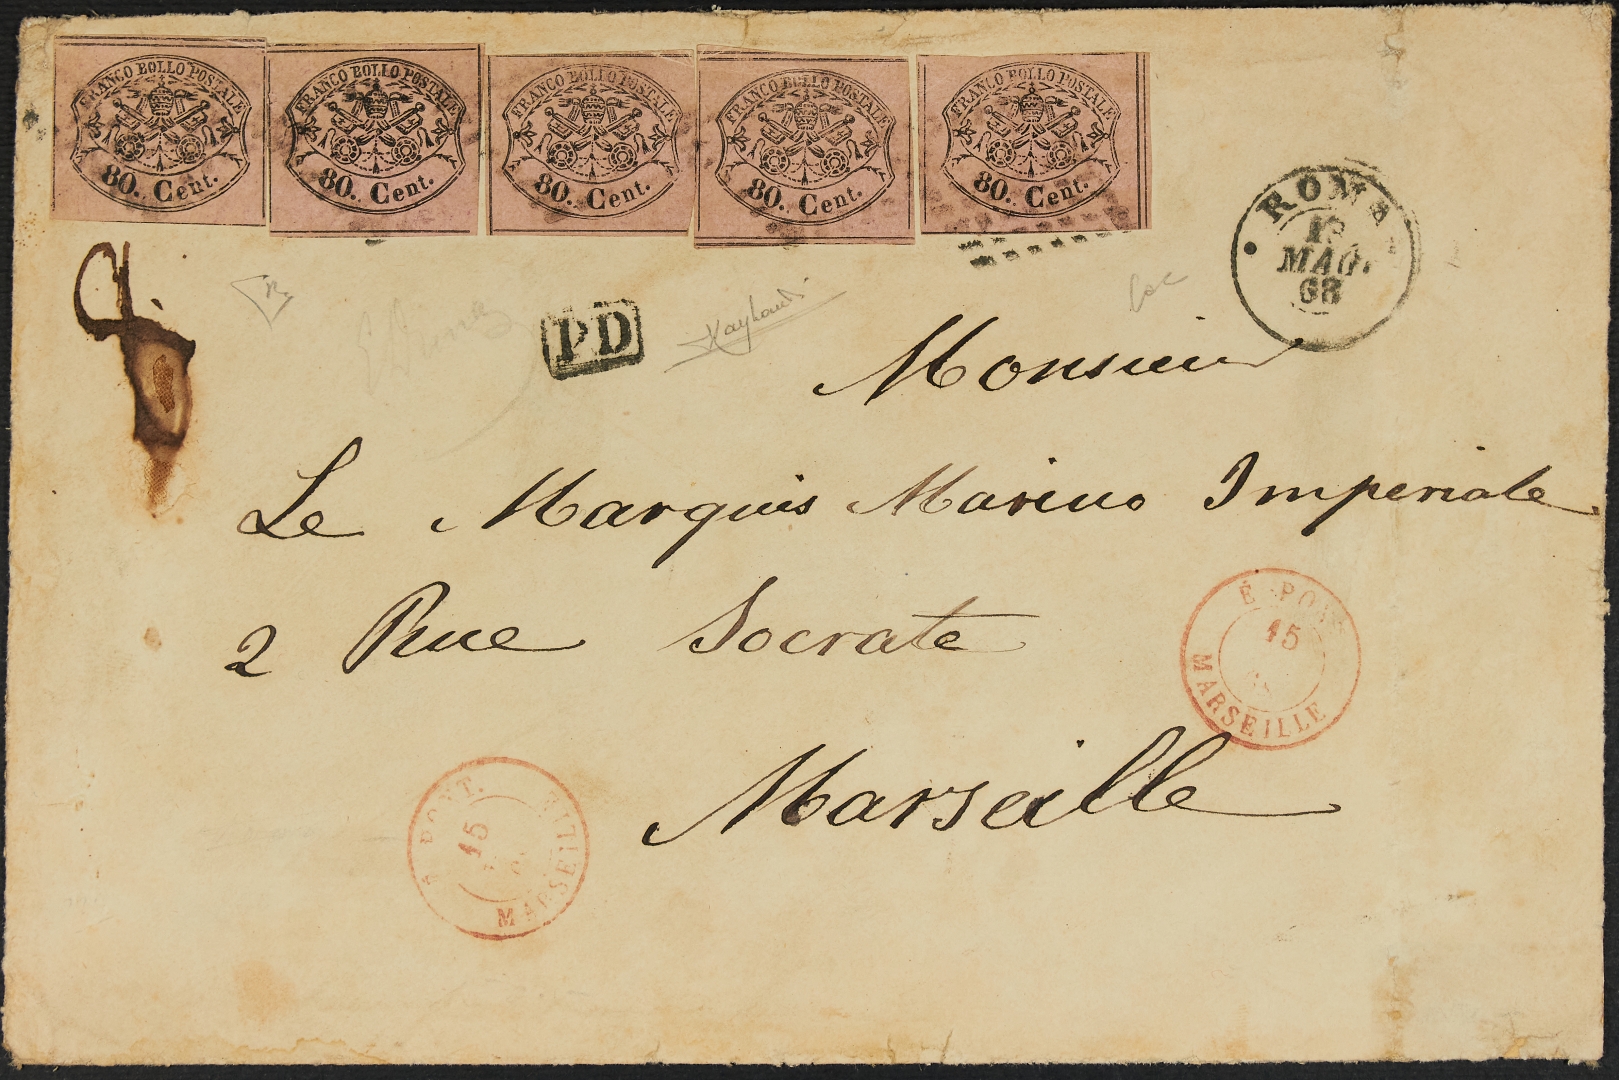 FRANCO BOLLO POSTALE
80. Cent.
FRANCO BOLLO POSTALE
80. Cent.
FRANCO BOLLO POSTALE
80. Cent.
FRANCO BOLLO POSTALE
80. Cent.
FRANCO BOLLO POSTALE
80. Cent.
ROMA
MAG.
68
PD
Monsieur
Le Marquis Marino Imperiale
2 Rue Socrate
Marseille
15
MARSEILLE
15
MARSEILLE